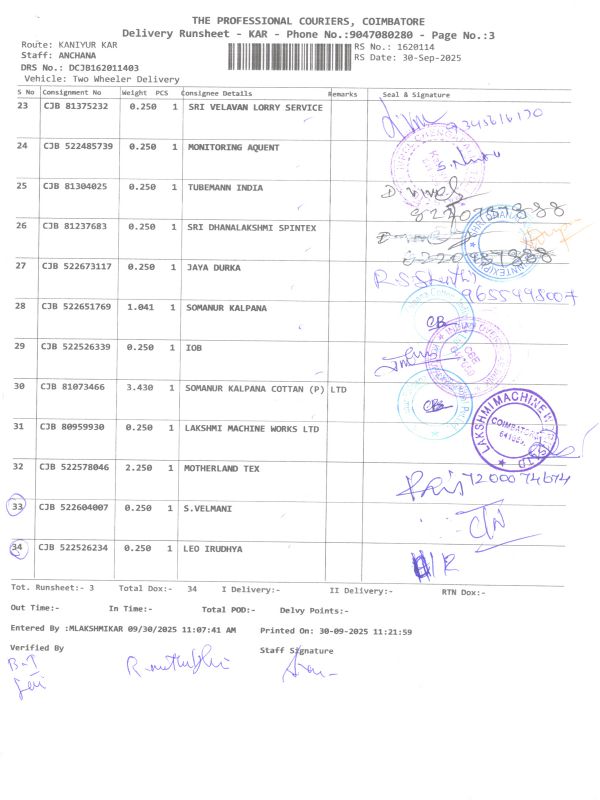 THE PROFESSIONAL COURIERS, COIMBATORE
Delivery Runsheet - KAR - Phone No.:9047080280 - Page No.:3
Route: KANIYUR KAR RS No.: 1620114
Staff: ANCHANA RS Date: 30-Sep-2025
DRS No.: DCJB162011403
Vehicle: Two Wheeler Delivery
S No Consignment No Weight PCS Consignee Details Remarks Seal & Signature
23 CJB 81375232 0.250 1 SRI VELAVAN LORRY SERVICE
24 CJB 522485739 0.250 1 MONITORING AQUENT
25 CJB 81304025 0.250 1 TUBEMANN INDIA
26 CJB 81237683 0.250 1 SRI DHANALAKSHMI SPINTEX
27 CJB 522673117 0.250 1 JAYA DURKA
9655498007
28 CJB 522651769 1.041 1 SOMANUR KALPANA
29 CJB 522526339 0.250 1 IOB
30 CJB 81073466 3.430 1 SOMANUR KALPANA COTTAN (P) LTD
31 CJB 80959930 0.250 1 LAKSHMI MACHINE WORKS LTD
LAKSHMI MACHINE
32 CJB 522578046 2.250 1 MOTHERLAND TEX
33 CJB 522604007 0.250 1 S.VELMANI
34 CJB 522526234 0.250 1 LEO IRUDHYA
Tot. Runsheet:- 3 Total Dox:- 34 I Delivery:- II Delivery:- RTN Dox:-
Out Time:- In Time:- Total POD:- Delvy Points:-
Entered By :MLAKSHMIKAR 09/30/2025 11:07:41 AM Printed On: 30-09-2025 11:21:59
Verified By Staff Signature